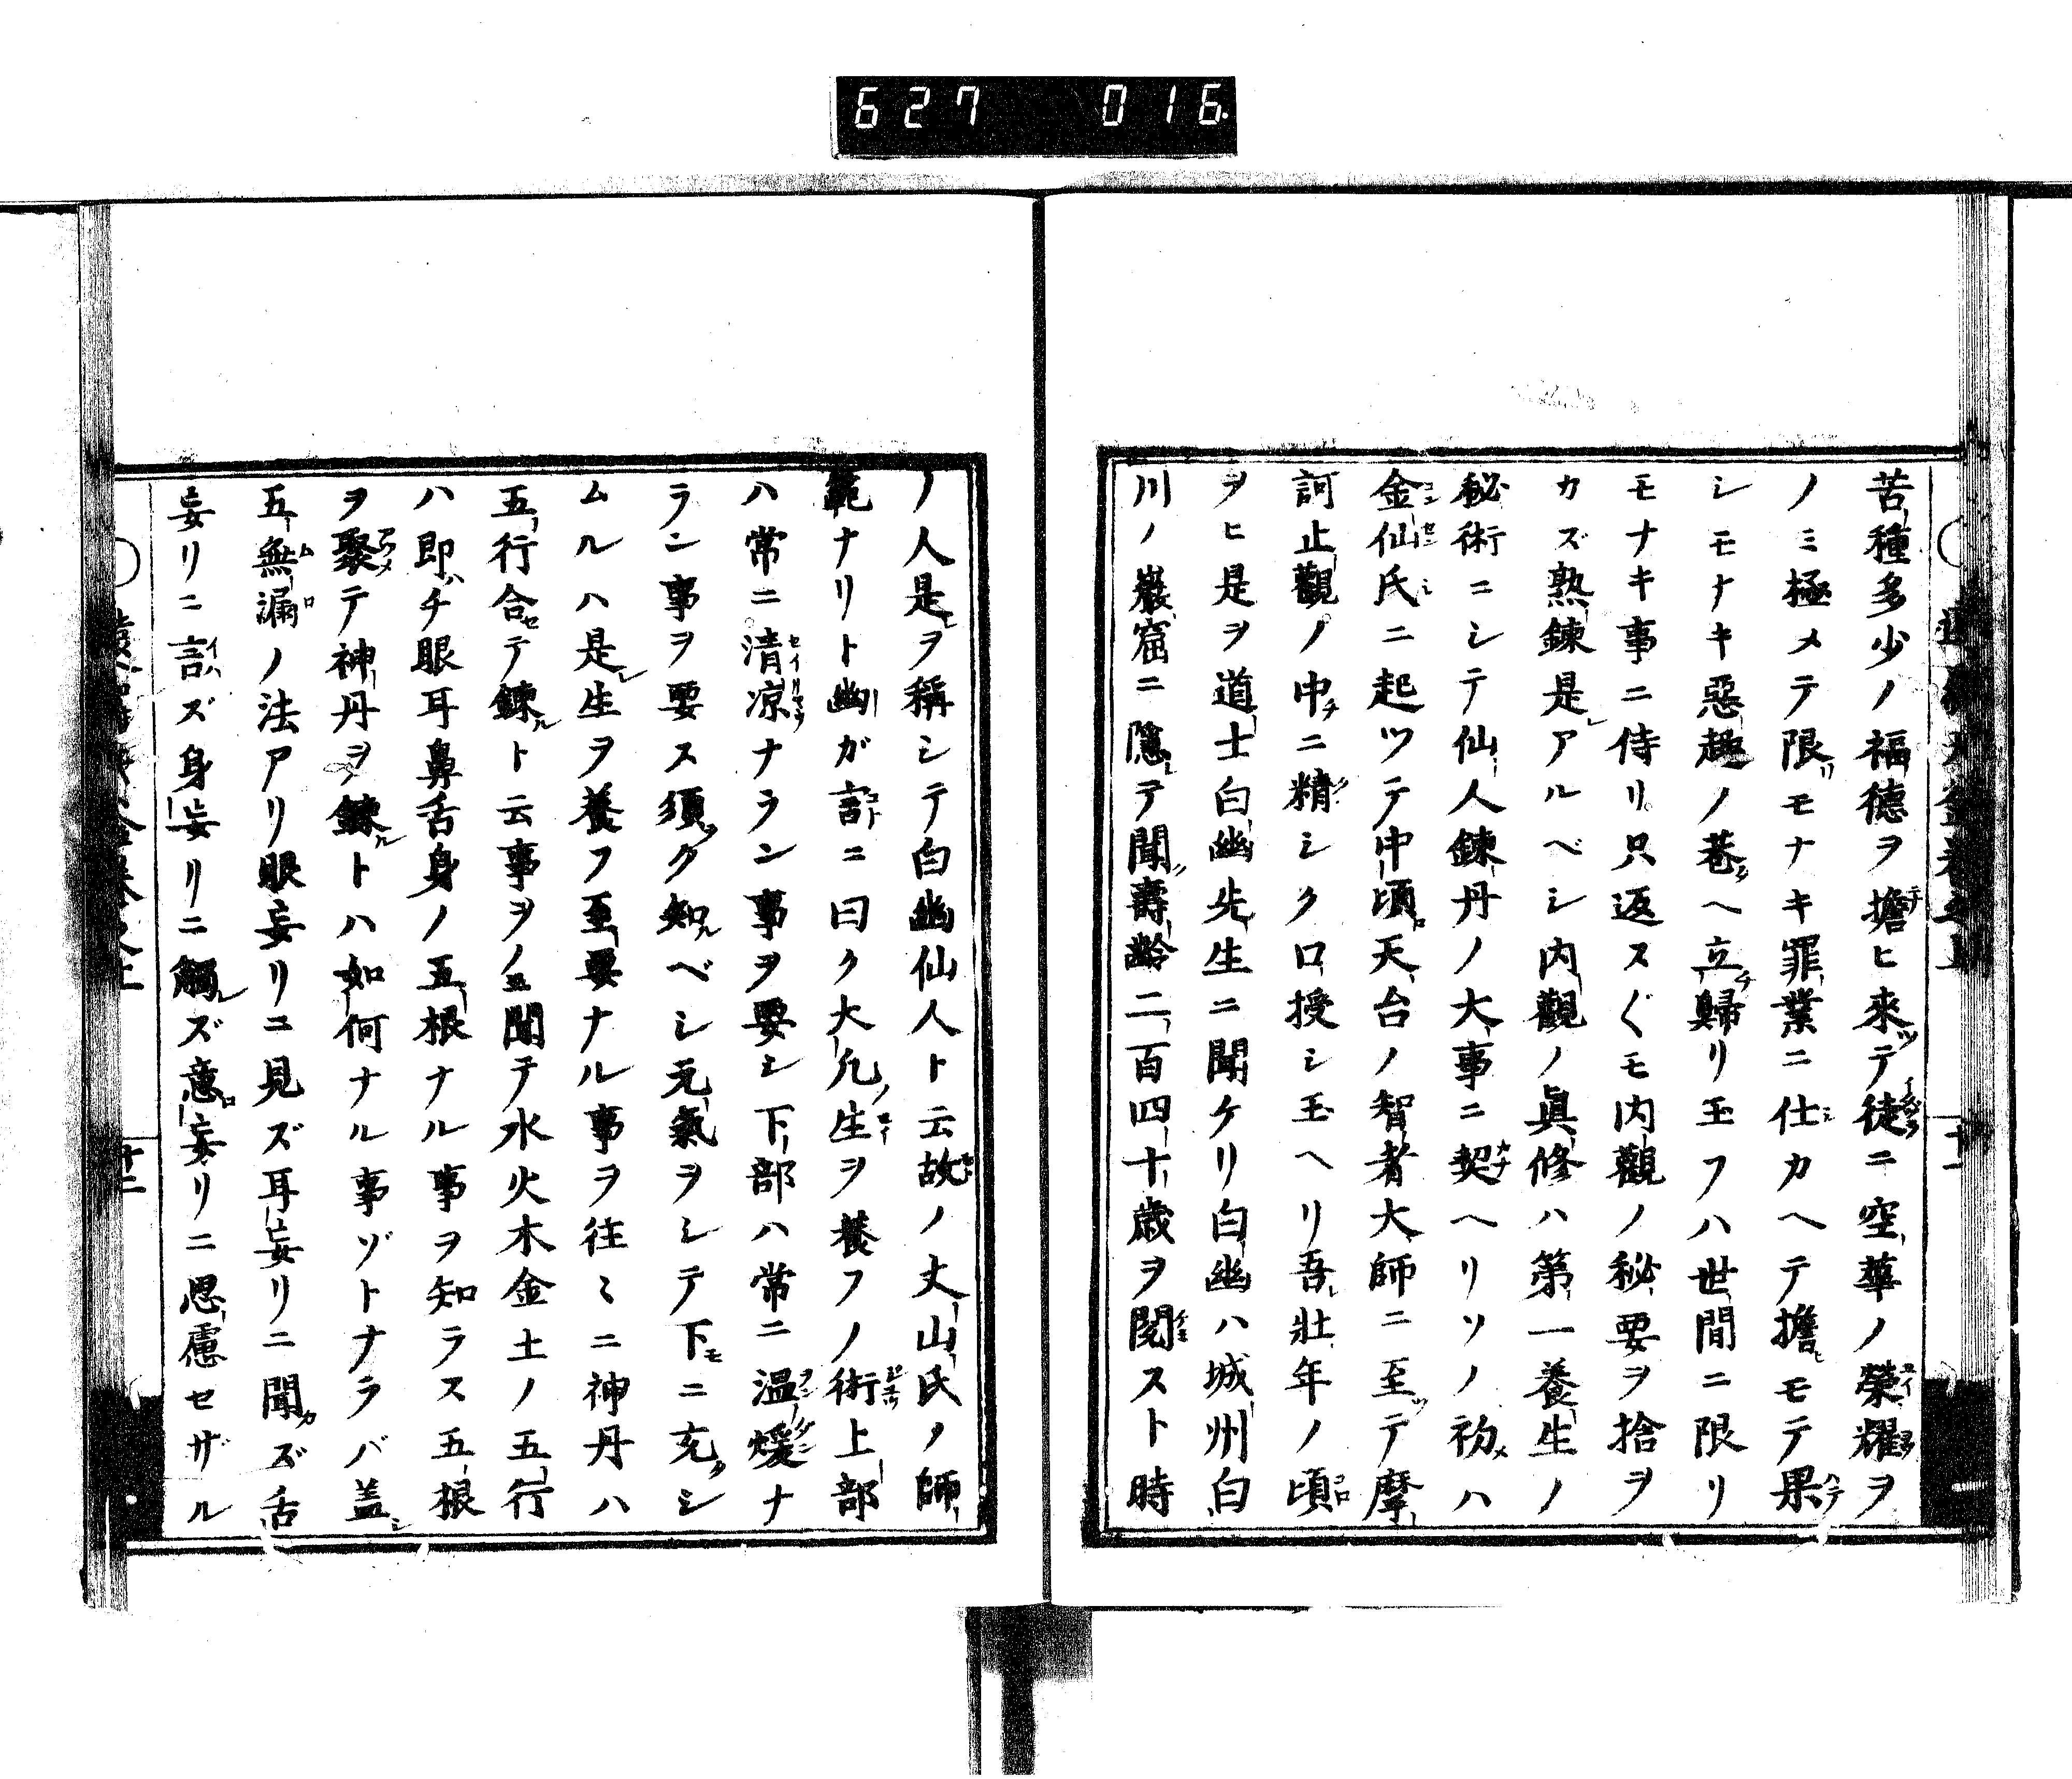 627 016
苦種多少ノ福德ヲ擔ヒ來テ徒ニ空華ノ榮耀ヲ
ノミ極メテ限リモナキ罪業ニ仕カヘテ擔ヒモテ果
シモナキ惡趣ノ巷ヘ立歸リ玉フハ世間ニ限リ
モナキ事ニ侍リ只返スぐモ内觀ノ秘要ヲ捨ヲ
カズ熟鍊是アルベシ内觀ノ眞修ハ第一養生ノ
秘術ニシテ仙人鍊丹ノ大事ニ契ヘリソノ初ハ
金仙氏ニ起ツテ中頃天台ノ智者大師ニ至テ摩
訶止觀ノ中ニ精シク口授シ玉ヘリ吾壯年ノ頃
ヲヒ是ヲ道士白幽先生ニ聞ケリ白幽ハ城州白
川ノ巖窟ニ隱テ聞壽齡二百四十歳ヲ閱スト時
ノ人是ヲ稱シテ白幽仙人ト云故ノ丈山氏ノ師
範ナリト幽ガ言ニ曰ク大凡生ヲ養フノ術上部
ハ常ニ清凉ナラン事ヲ要シ下部ハ常ニ温煖ナ
ラン事ヲ要ス須ク知ベシ元氣ヲシテ下ニ充シ
ムルハ是生ヲ養フ至要ナル事ヲ往〻ニ神丹ハ
五行合テ鍊ト云事ヲノミ聞テ水火木金土ノ五行
ハ即チ眼耳鼻舌身ノ五根ナル事ヲ知ラス五根
ヲ聚テ神丹ヲ鍊トハ如何ナル事ゾトナラバ盖
五無漏ノ法アリ眼妄リニ見ズ耳妄リニ聞ズ舌
妄リニ言ズ身妄リニ觸ズ意妄リニ思慮セザル
十二